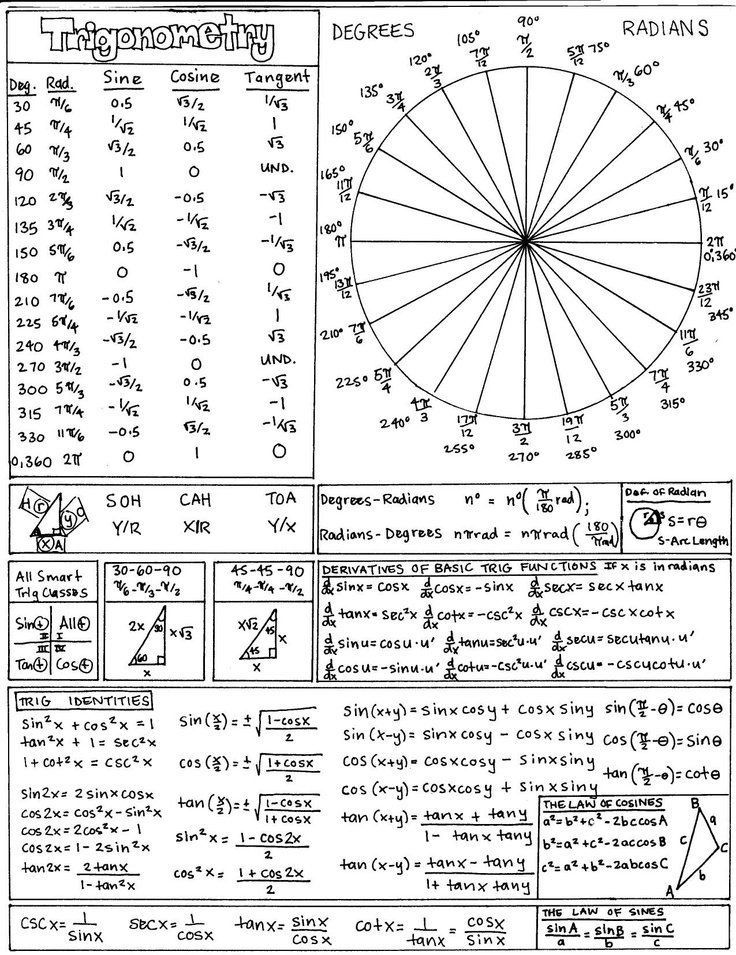 Trigonometry
Deg. Rad. Sine Cosine Tangent
30 π/6 0.5 √3/2 1/√3
45 π/4 1/√2 1/√2 1
60 π/3 √3/2 0.5 √3
90 π/2 1 0 UND.
120 2π/3 √3/2 -0.5 -√3
135 3π/4 1/√2 -1/√2 -1
150 5π/6 0.5 -√3/2 -1/√3
180 π 0 -1 0
210 7π/6 -0.5 -√3/2 1/√3
225 5π/4 -1/√2 -1/√2 1
240 4π/3 -√3/2 -0.5 √3
270 3π/2 -1 0 UND.
300 5π/3 -√3/2 0.5 -√3
315 7π/4 -1/√2 1/√2 -1
330 11π/6 -0.5 √3/2 -1/√3
0,360 2π 0 1 0
DEGREES
RADIANS
90° π/2
5π/12 75°
π/3 60°
π/4 45°
π/6 30°
π/12 15°
2π 0°,360°
23π/12 345°
11π/6 330°
7π/4 315°
5π/3 300°
19π/12 285°
3π/2 270°
17π/12 255°
4π/3 240°
225° 5π/4
210° 7π/6
195° 13π/12
180° π
165° 11π/12
150° 5π/6
135° 3π/4
120° 2π/3
105° 7π/12
H r y O
X A
SOH CAH TOA
Y/R X/R Y/X
Degrees-Radians n° = n°(π/180 rad);
Radians-Degrees nπrad = nπrad(180/πrad)
Def. of Radian
r s
S=rθ
S-Arc Length
All Smart
Trig Classes
Sin(+) All(+)
II I
III IV
Tan(+) Cos(+)
30-60-90
π/6-π/3-π/2
2x 30 x√3
60
x
45-45-90
π/4-π/4-π/2
x√2 45 x
45
x
DERIVATIVES OF BASIC TRIG FUNCTIONS IF x is in radians
d/dx sinx = cosx d/dx cosx = -sinx d/dx secx = secx tanx
d/dx tanx = sec²x d/dx cotx = -csc²x d/dx cscx = -cscxcotx
d/dx sinu = cosu·u' d/dx tanu = sec²u·u' d/dx secu = secutanu·u'
d/dx cosu = -sinu·u' d/dx cotu = -csc²u·u' d/dx cscu = -cscucotu·u'
TRIG IDENTITIES
sin²x + cos²x = 1
tan²x + 1 = sec²x
1 + cot²x = csc²x
sin2x = 2sinxcosx
cos2x = cos²x - sin²x
cos2x = 2cos²x - 1
cos2x = 1 - 2sin²x
tan2x = 2tanx/1-tan²x
sin(x/2) = ±√(1-cosx/2)
cos(x/2) = ±√(1+cosx/2)
tan(x/2) = ±√(1-cosx/1+cosx)
sin²x = 1-cos2x/2
cos²x = 1+cos2x/2
sin(x+y) = sinxcosy + cosxsiny
sin(x-y) = sinxcosy - cosxsiny
cos(x+y) = cosxcosy - sinxsiny
cos(x-y) = cosxcosy + sinxsiny
tan(x+y) = tanx + tany/1 - tanxtany
tan(x-y) = tanx - tany/1 + tanxtany
sin(π/2-θ) = cosθ
cos(π/2-θ) = sinθ
tan(π/2-θ) = cotθ
THE LAW OF COSINES
a² = b²+c² - 2bccosA
b² = a²+c² - 2accosB
c² = a²+b² - 2abcosC
B
a
c
C
b
A
cscx = 1/sinx secx = 1/cosx tanx = sinx/cosx cotx = 1/tanx = cosx/sinx
THE LAW OF SINES
sinA/a = sinB/b = sinC/c